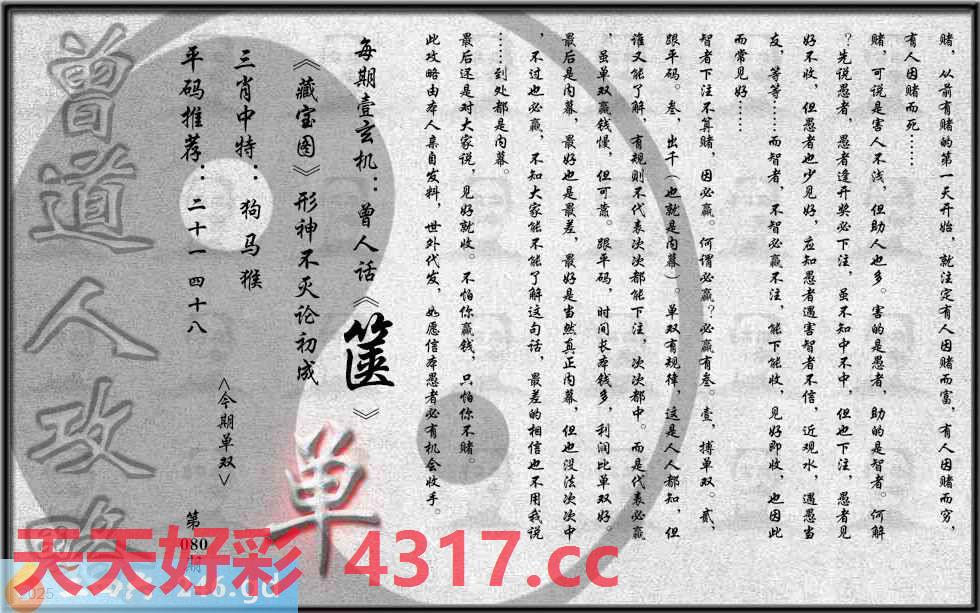 赌，从前有赌的第一天开始，就注定有人因赌而富，有人因赌而穷，
有人因赌而死……
赌，可说是害人不浅，但助人也多。害的是愚者，助的是智者。何解
？先说愚者，愚者逢开奖必下注，虽不知中不中，但也下注，愚者见
好不收，但愚者也少见好，应知愚者遇害智者不信，近观水，遇愚当
友，等等……而智者，不智必赢不注，能下能收，见好即收，也因此
而常见好……
智者下注不算赌，因必赢。何谓必赢？必赢有叁。壹，搏单双。贰，
跟平码。叁，出千（也就是内幕）。单双有规律，这是人人都知，但
谁又能了解，有规则不代表次次都能下注，次次都中。而是代表必赢
，虽单双赢钱慢，但可靠。跟平码，时间长本钱多，利润比单双好。
最后是内幕，最好也是最差，最好是当然真正内幕，但也没法次次中
，不过也必赢，不知大家能不能了解这句话，最差的相信也不用我说
……到处都是内幕。
最后还是对大家说，见好就收。不怕你赢钱，只怕你不赌。
此攻略由本人亲自发料，世外代发，如愿信本愚者必有机会收手。
每期壹玄机：曾人话《篋》
《藏宝图》形神不灭论初成
单
三肖中特：狗马猴
<今期单双>
平码推荐：二十一 四十八
第
080
期
曾道人攻略
天天好彩 4317.cc
2025
246.gd